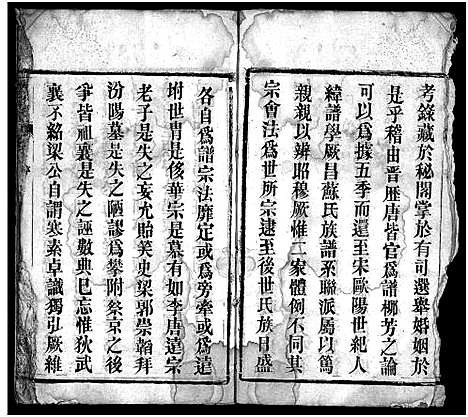 考錄藏於秘閣掌於有司選舉婚姻於
是乎稽由晋歴唐皆官爲譜柳芳之論
可以爲據五季而還至宋歐陽世紀人
緯譜學厥昌蘇氏族譜系聯派屬以篤
親親以辨昭穆厥惟二家體例不同其
宗會法爲世所宗逮至後世氏族日盛
各自爲譜宗法靡定或爲旁牽或爲遠
坿世胄是後華宗是慕有如李唐遠宗
老子是失之妄尤貽笑史梁郭崇韜拜
汾陽墓是失之陋謬爲攀附祭京之後
爭皆祖襄是失之誣數典巳忘惟狄武
襄不絡梁公自謂寒素卓識獨弘厥維